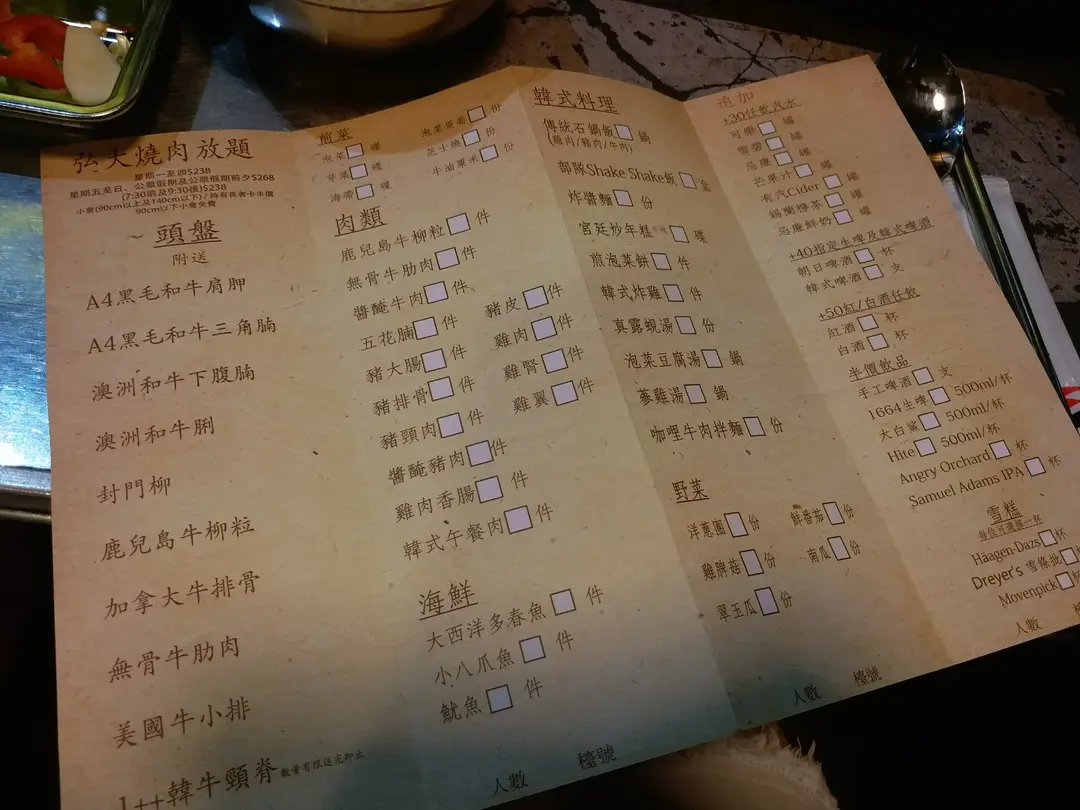 弘大燒肉放題
星期一至四$238
星期五至日、公眾假期及公眾假期前夕$268
(7:30前及9:30後)$238
小童(90cm以上及140cm以下)/持有長者卡半價
90cm以下小童免費
頭盤
附送
A4黑毛和牛肩胛
A4黑毛和牛三角腩
澳洲和牛下腹腩
澳洲和牛脷
封門柳
鹿兒島牛柳粒
加拿大牛排骨
無骨牛肋肉
美國牛小排
1++韓牛頸脊 數量有限送完即止
前菜
泡菜 碟
芽菜 碟
海帶 碟
泡菜蛋卷 份
芝士燒 份
牛油粟米 份
肉類
鹿兒島牛柳粒 件
無骨牛肋肉 件
醬醃牛肉 件
五花腩 件
豬大腸 件
豬排骨 件
豬頸肉 件
醬醃豬肉 件
雞肉香腸 件
韓式午餐肉 件
豬皮 件
雞肉 件
雞腎 件
雞翼 件
海鮮
大西洋多春魚 件
小八爪魚 件
魷魚 件
人數 檯號
韓式料理
傳統石鍋飯 鍋
(雞肉/豬肉/牛肉)
部隊Shake Shake飯 盒
炸醬麵 份
宮廷炒年糕 碟
煎泡菜餅 件
韓式炸雞 件
真露蜆湯 份
泡菜豆腐湯 鍋
蔘雞湯 鍋
咖哩牛肉拌麵 份
野菜
洋蔥圈 份
雞脾菇 份
翠玉瓜 份
鮮番茄 份
南瓜 份
人數 檯號
追加
+30任飲汽水
可樂 罐
雪碧 罐
忌廉 罐
芒果汁 罐
有汽Cider 罐
錫蘭檸茶 罐
忌廉鮮奶 罐
+40指定生啤及韓式啤酒
朝日啤酒 杯
韓式啤酒 支
+50紅/白酒任飲
紅酒 杯
白酒 杯
半價飲品
手工啤酒 支
1664生啤 500ml/杯
大白鯊 500ml/杯
Hite 500ml/杯
Angry Orchard 杯
Samuel Adams IPA 杯
雪糕
每位可選擇一杯
Häagen-Dazs 杯
Dreyer's 雪條批
Movenpick 杯
人數